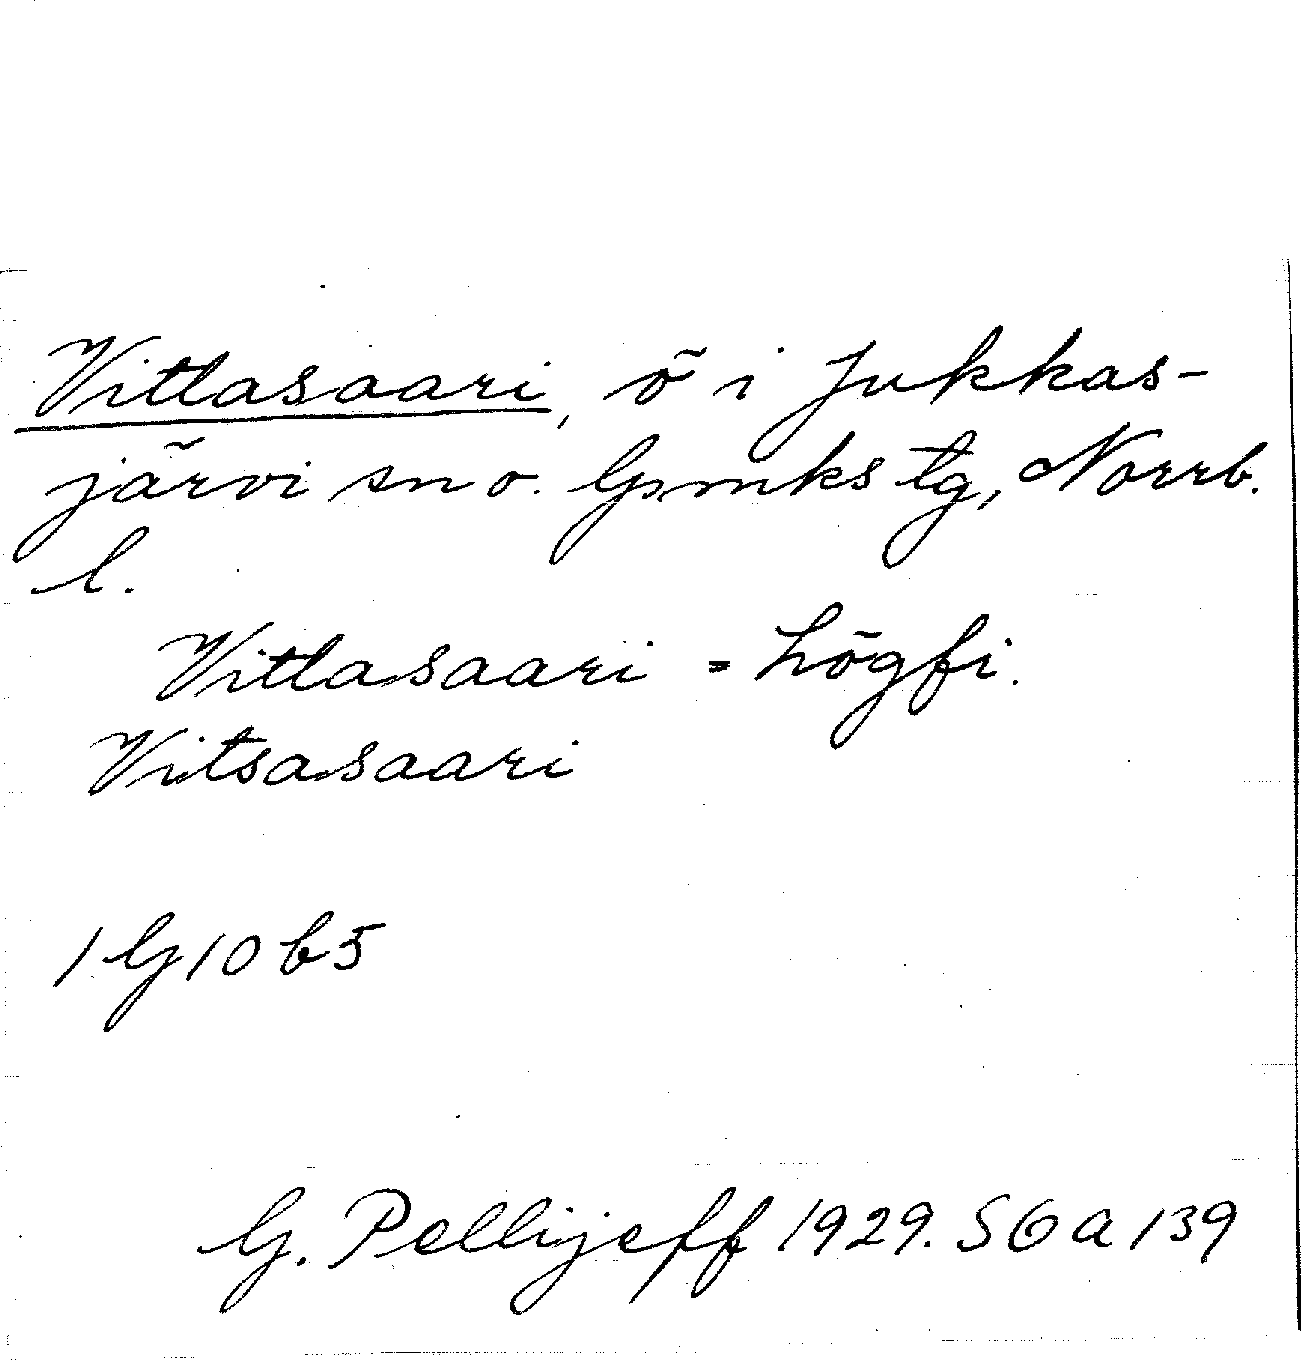 Vittasaari, ö i Jukkas-
järvi sn o. Gsmks tg, Norrb.
l.
Vittasaari = högfi.
Vitsasaari
1 G 10 b 5
G. Pellijeff 1929. SOA 139